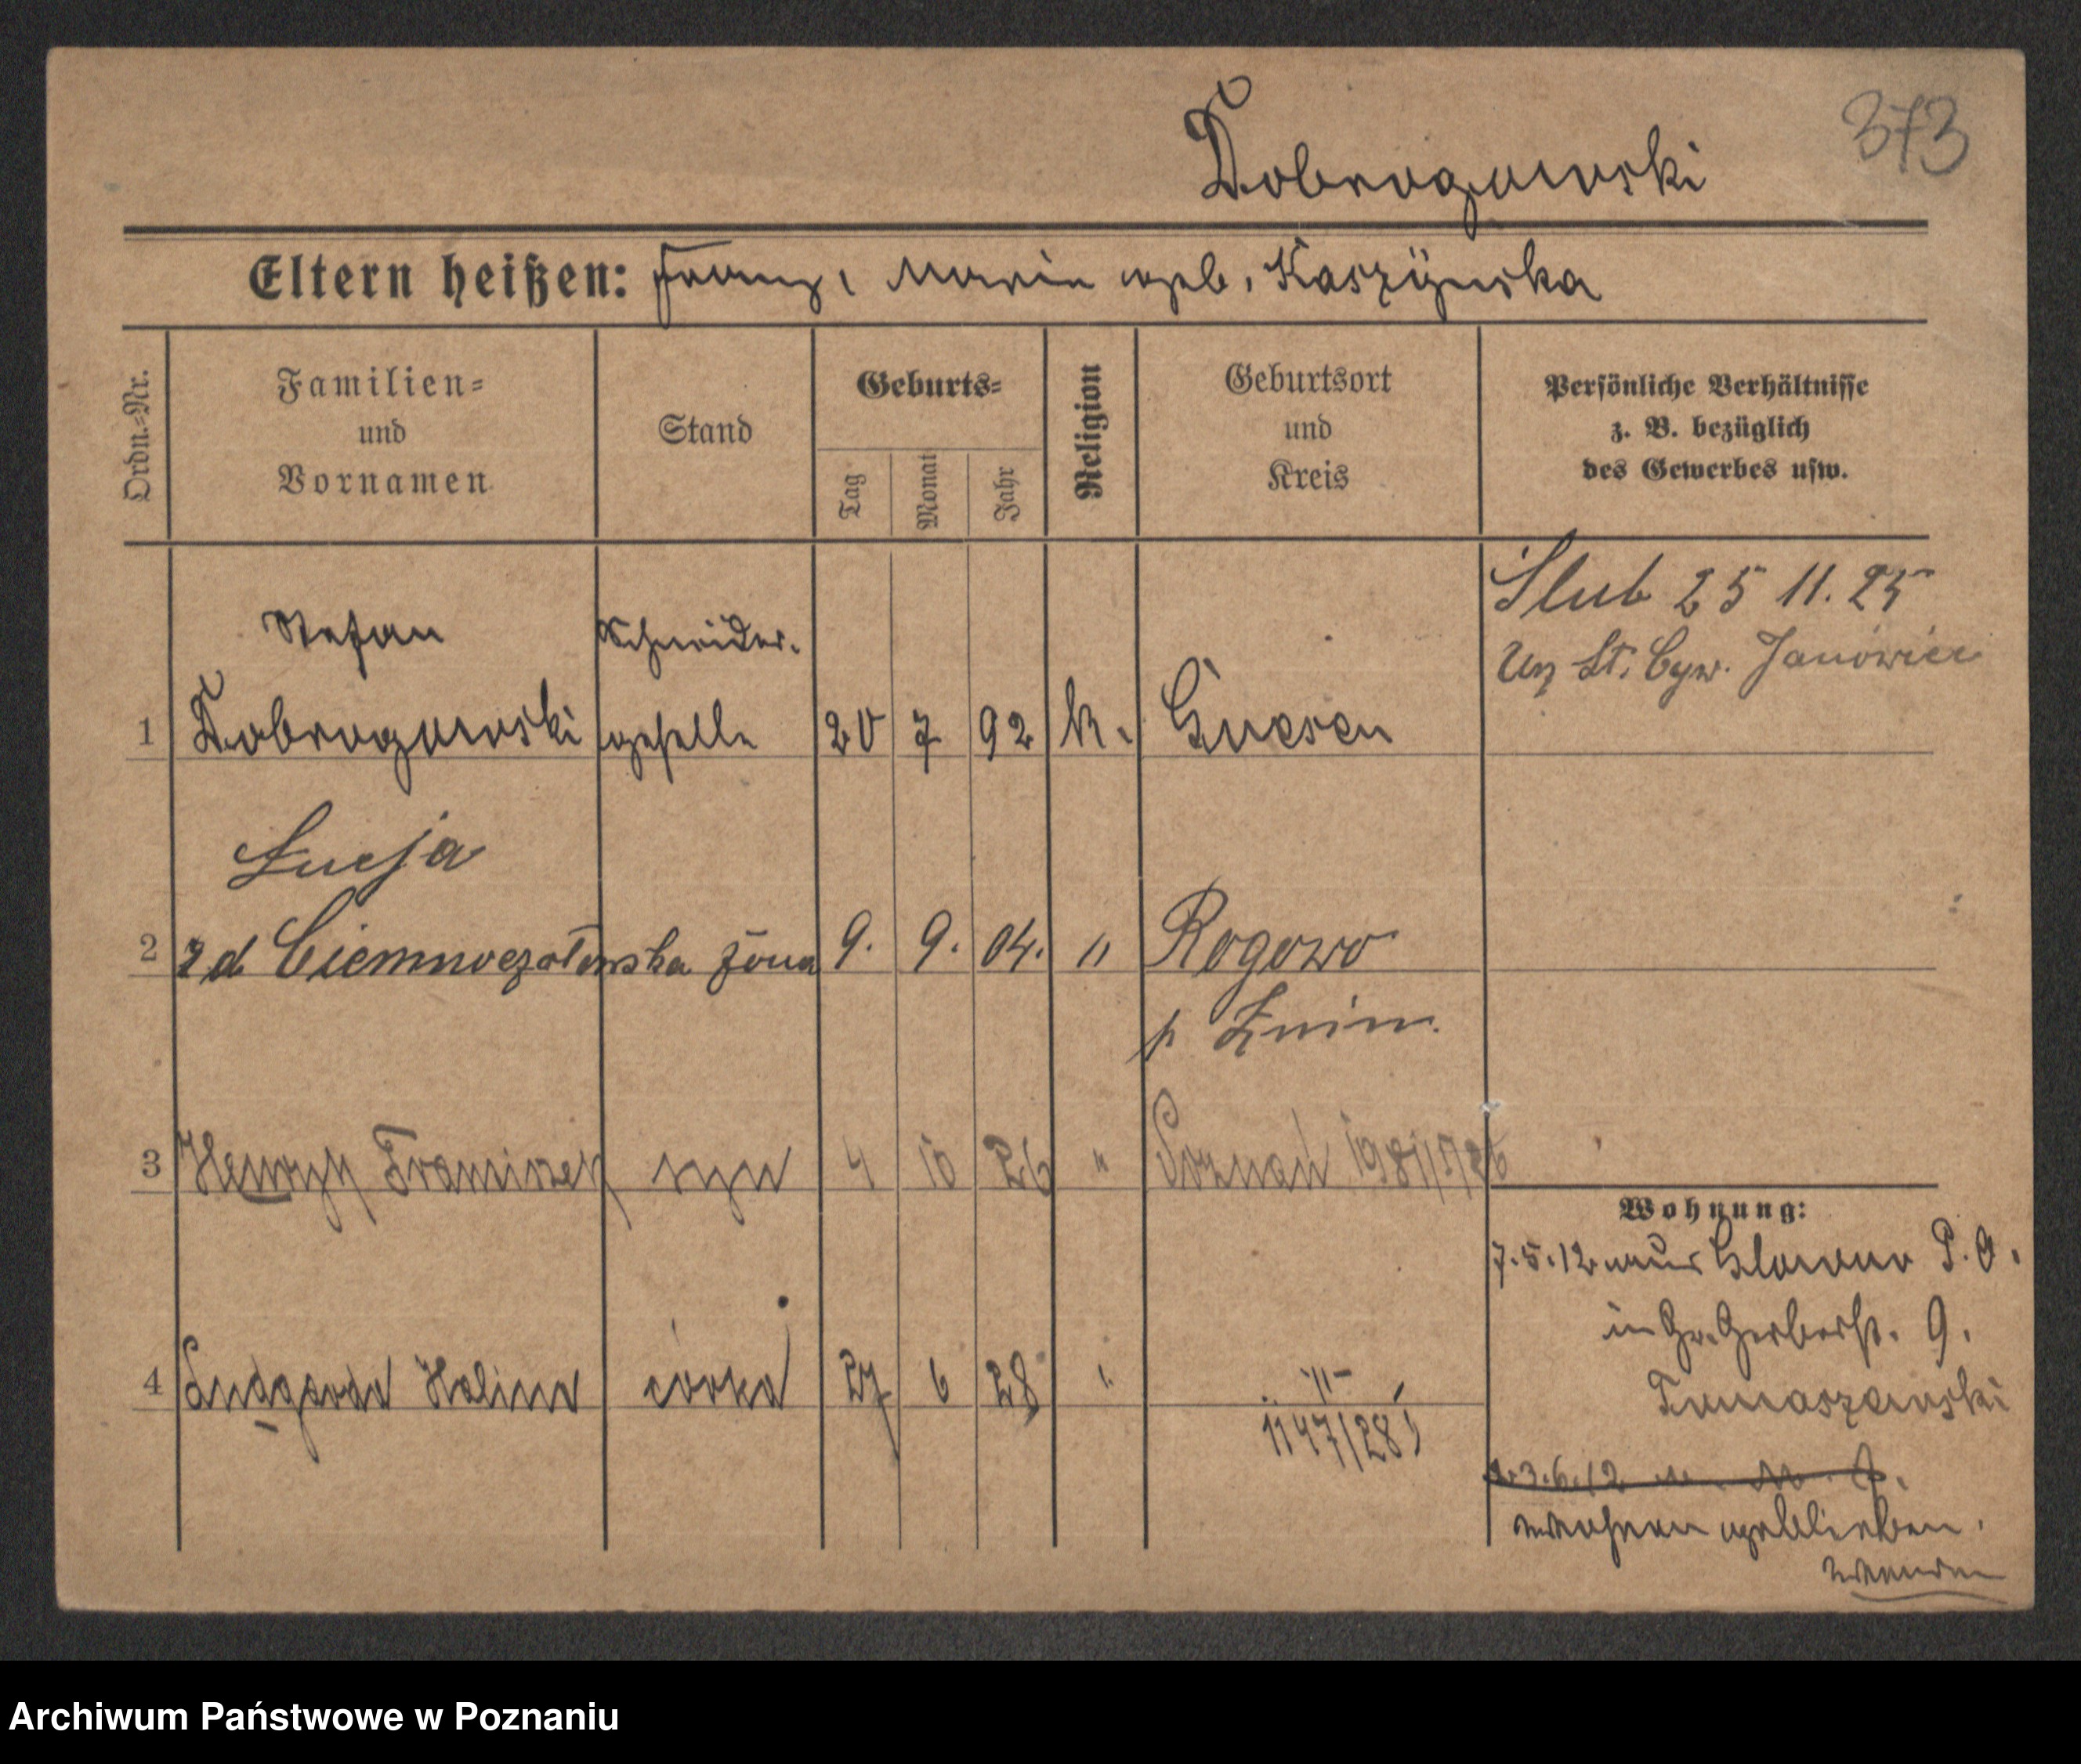 373
Dobrogowski
Eltern heißen: Franz, Maria geb. Kaszÿnska
Ordn.=Nr.
Familien=
und
Vornamen
Stand
Geburts=
Tag
Monat
Jahr
Religion
Geburtsort
und
Kreis
Persönliche Verhältnisse
z. B. bezüglich
des Gewerbes usw.
Ślub 25 11. 25
Urz St. Cyw. Janówiec
Stefan Schneider-
1 Dobrogowski geselle 20 7 92 k. Gnesen
Łucja
2 zd żona 9. 9. 04. " Rogowo
p Żnin
3 Henryk Franciszek syn 4 10 26 " Poznań
4 Halina córka 27 6 28 " -"-
1147/28
Wohnung:
7.5.12 aus Glowno P. O.
in Gr. Gerberst. 9.
Tomaszewski
3.6.12
wohnen geblieben.
wenden